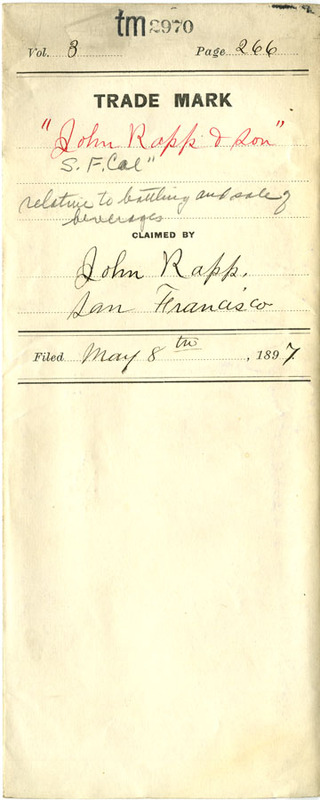 tm 2970
Vol. 3 Page 266
TRADE MARK
"John Rapp & Son"
S. F. Cal"
relative to bottling and sale of
beverages
CLAIMED BY
John Rapp.
San Francisco
Filed May 8th, 1897